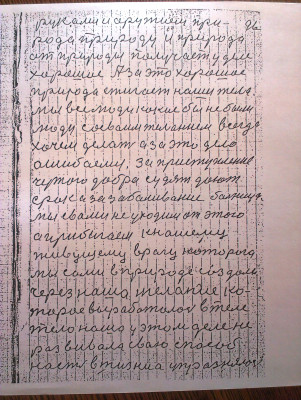 руками и оружием при-
96
рода природу и природа
от природы получает уже
хорошое А за это хорошое
природа стигает наши тела
мы все люди какие бы не были
люди со своим желанием всегда
хочем делат а за это дело
ошибаемся, за приступление
чужого добра судят дают
срок а за заболивание болницу
мы с вами не уходим от этого
а прибигаем к нашему
живущему врагу которого
мы сами в природе создали
через наша желание ко-
торое выработалос в теле
тело наша у этом деле не
развивала сваю способ
ность в жизниа упражнялос